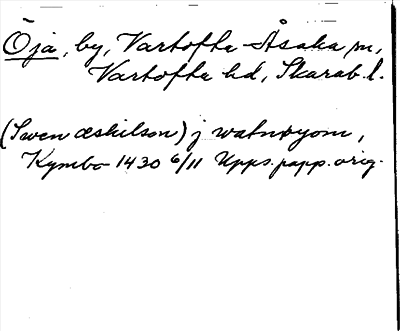 Öja, by, Vartofta-Åsaka sn,
Vartofta hd, Skarab. l.
(Swen æskilson) j watnøyom,
Kymbo 1430 6/11 Upps. papp. orig.